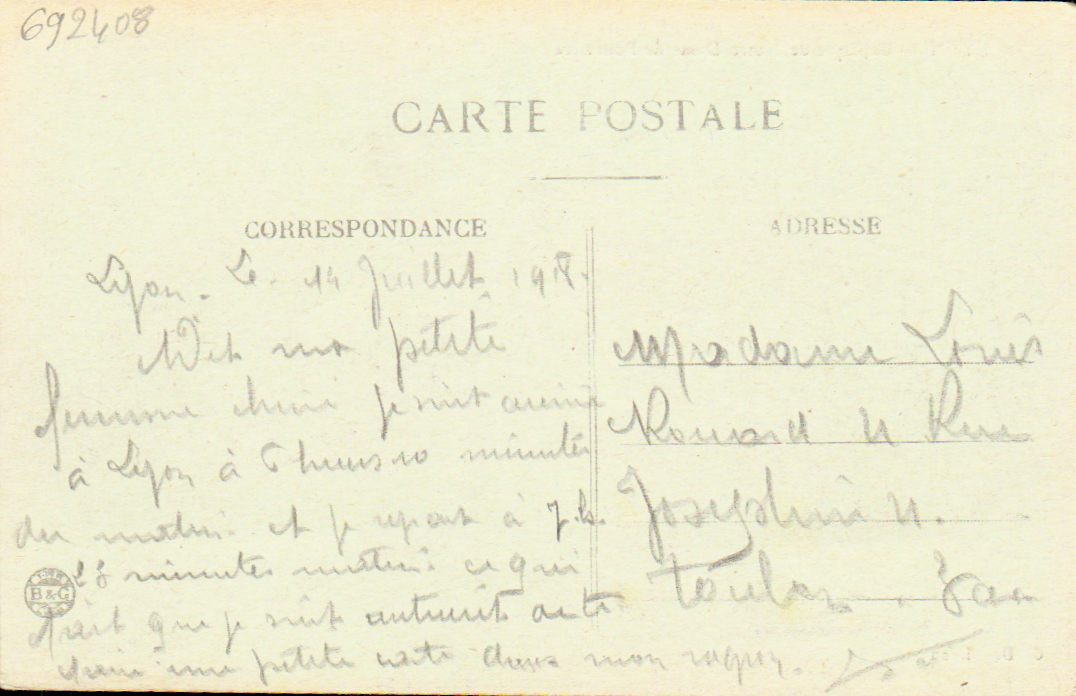 692408
CARTE POSTALE
CORRESPONDANCE
ADRESSE
Lyon. Le. 14 Juillet 1918.
ma petite
femme cherie je suit arrivé
à Lyon à 6 heures 10 minutes
du matin. et je repart à 7 h.
23 minutes matin ce qui
fait que je suit en
une petite carte dans mon wagon.
Madame Louis
11 Rue
Josephine 11.
Toulon. Var
B & G